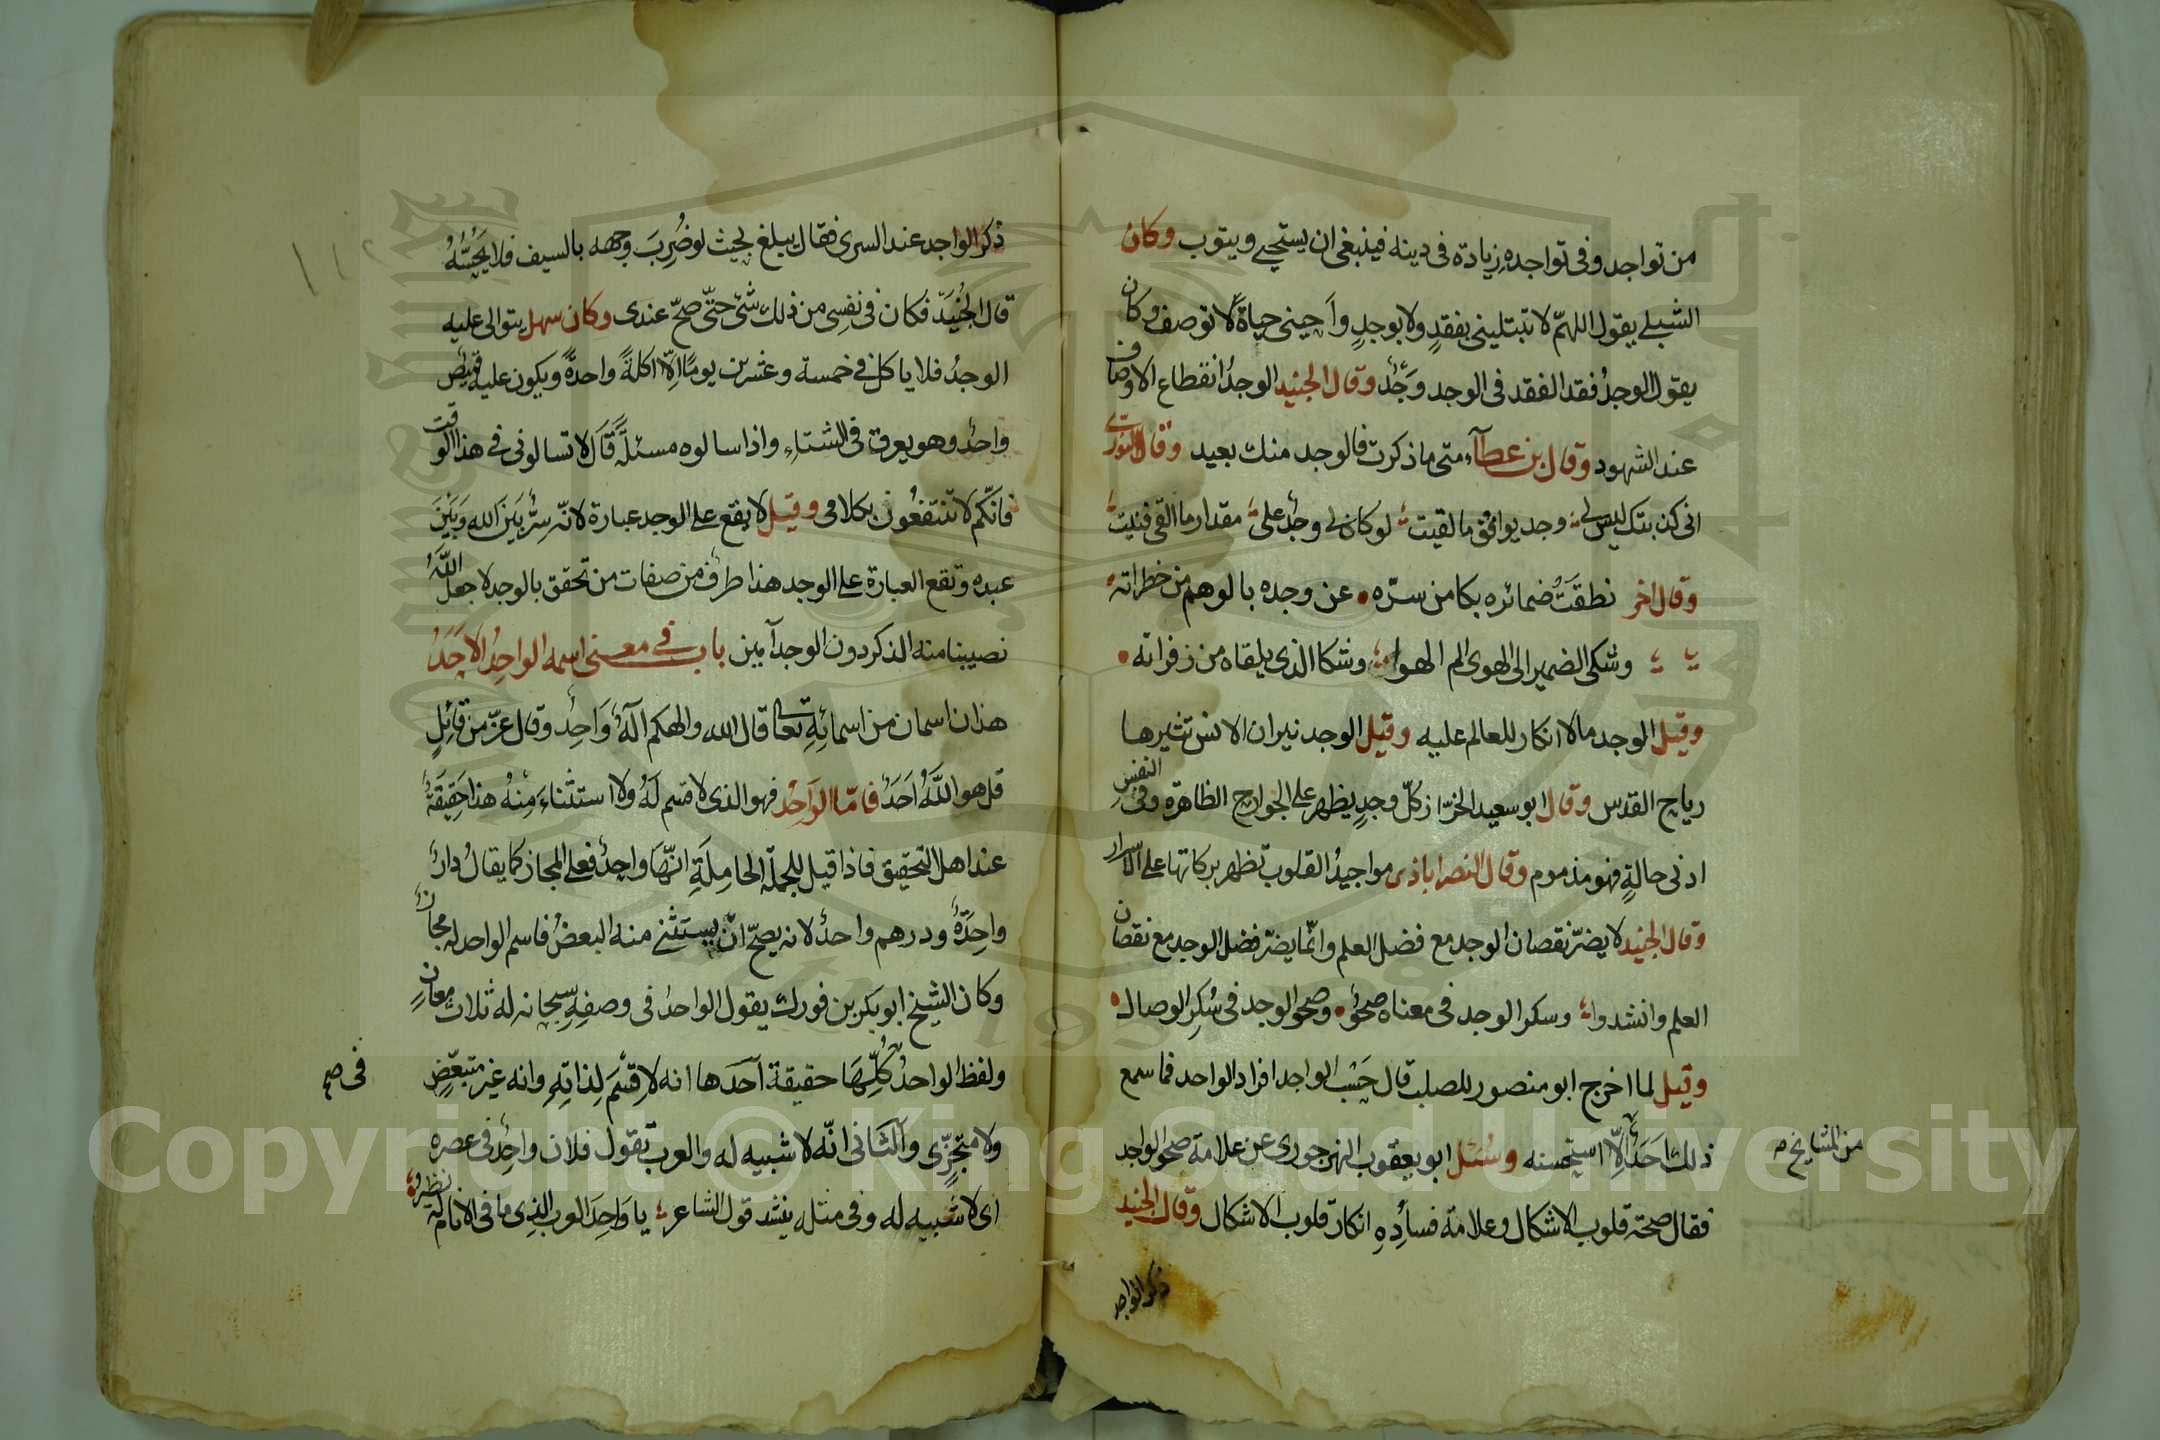 من تواجد وفى تواجده زيادة فى دينه فينبغى ان يستحيي ويتوب وكان
الشبلى يقول اللهم لا تبتلينى بفقدٍ ولا بوجدٍ وأحيينى حياةً لا توصف وكان
يقول الوجدُ فقد الفقد فى الوجد وَجْدٌ وقال الجنيد الوجدُ انقطاع الاوصاف
عند الشهود وقال بن عطآء متى ما ذكرت فالوجد منك بعيد وقال النورى
انى كن بتك ليس لى وجد يوافق ما لقيت لو كان لى وجدٌ على مقدار ما القى فنيت
وقال اخر نطقَتْ ضمائره بكامن سرّه عن وجده بالوهم من خطراته
وشكى الضمير الى الهوى الم الهوا وشكا الذى يلقاه من زفراته
وقيل الوجد مالا انكار للعالم عليه وقيل الوجد نيران الانس تثيرها
رياح القدس وقال ابو سعيد الخرّاز كلّ وجدٍ يظهر على الجوارح الظاهرة وفى النفس
ادنى حالةٍ فهو مذموم وقال النصراباذى مواجيدُ القلوب تظهر بركاتها على الاسرار
وقال الجنيد لا يضرّ نقصان الوجد مع فضل العلم وانّما يضرّ فضل الوجد مع نقصان
العلم وانشدوا وسكر الوجد فى معناه صحوٌ وصحو الوجد فى سُكرِ الوصال
وقيل لما اخرج ابو منصور للصلب قال حَسْب الواجد افراد الواحد فما سمع
ذلك احَدٌ الّا استحسنه وسُئل ابو يعقوب النهرجورى عن علامة صحو الواجد
من المشايخ صح
فقال صحة قلوب الاشكال وعلامة فسادِهِ انكار قلوب الاشكال وقال الجنيد
ذكر الواجد
ذكر الواجد عند السرى فقال يبلغ بحيث لو ضُرِبَ وجهه بالسيف فلا يَحُسُّهُ
قال الجُنَيْد فكان فى نفسِى من ذلك شئ حتّى صحّ عندى وكان سهل يتوالى عليه
الوجدُ فلا ياكل فى خمسة وعشرين يومًا اِلّا اكلةً واحدةً ويكون عليه قميص
واحدٌ وهو يعرق فى الشتاءِ واذا سالوه مسئلةً قال لا تسالونى فى هذا الوقت
فانّكم لا تنتفعُون بكلامى وقيل لا يقع على الوجد عبارة لانّه سِرٌّ بَيَن الله وبَيْنَ
عبده وتقع العبارة على الوجد هذا طرفٌ من صفات من تحقق بالوجد لا جعل اللّهُ
نصيبنا منه الذكر دون الوجد آمين باب فى معنى اسمه الواحِدُ الاَحَدُ
هذان اسمان من اسمائِهِ تعالى قال الله والهكم الٓهٌ وَاحِدٌ وقال عزّ من قائِلٍ
قل هو اللّهُ اَحَدٌ فامّا الوَاحِدُ فهو الذى لا قسم لَهُ ولا استثناءَ مِنْهُ هذا حَقِيقَةً
عند اهل التحقيق فاذا قيل للجملة الحامِلَةِ انّهَا واحِدٌ فعلى المجاز كما يقالُ دارٌ
واحِدَةٌ ودرهم واحدٌ لانه يصحّ انْ يستَثنى منه البعضُ فاسم الواحد له مجازٌ
وكان الشيخ ابو بكر بن فورك يقول الواحدُ فى وصفِهِ سبحانه له ثلاث معانٍ
ولفظ الواحدُ كُلِّهَا حقيقة اَحَدها انه لا قِسْمَ لِذاتِهِ وانه غير متبعّضٍ
فى صح
ولا متجزّى والثانى انّه لا شبيه له والعرب تقول فلان واحِدٌ فى عصره
اى لا شبيه له وفى مثله ينشد قول الشاعر يا وَاحِدَ العرب الذى ما فى الانام له نظير
Copyright © King Saud University